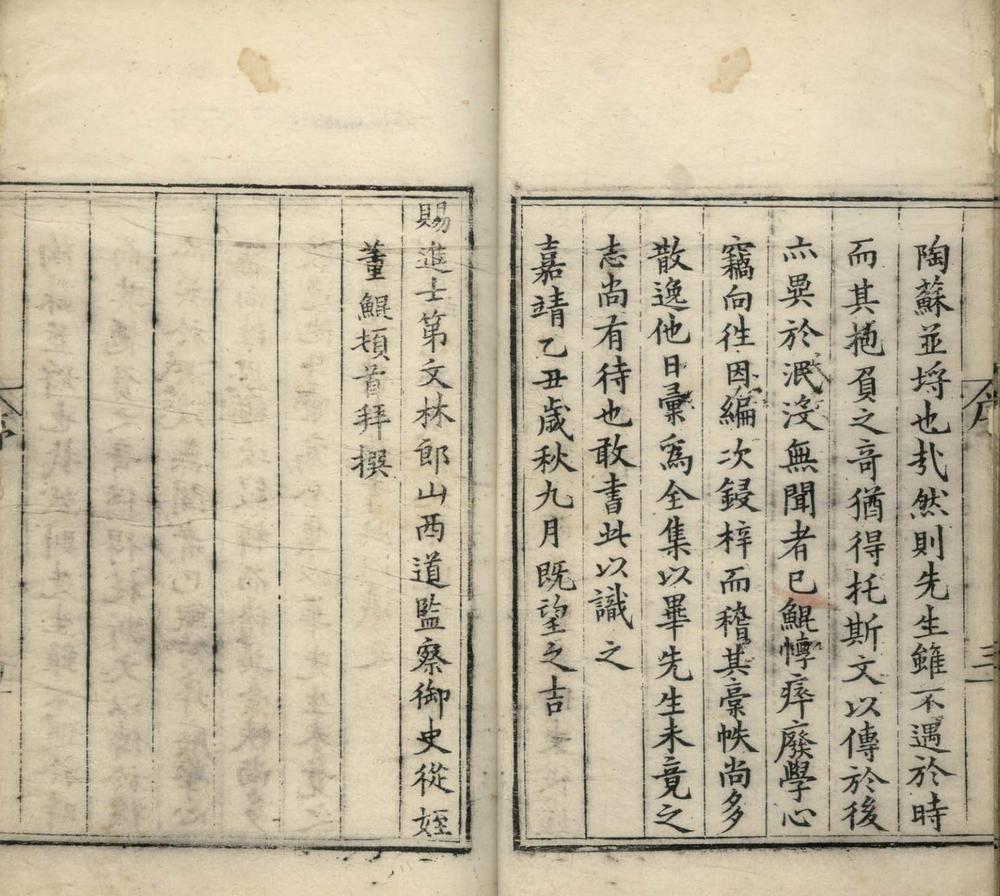 陶蘇並埒也哉然則先生雖不遇於時
而其抱負之竒猶得托斯文以傳於後
亦異於泯沒無聞者已鯤惸瘁廢學心
竊向徃因編次鋟梓而稽其稾帙尚多
散逸他日彙爲全集以畢先生未竟之
志尚有待也敢書此以識之
嘉靖乙丑歲秋九月既望之吉
賜進士第文林郎山西道監察御史從姪
董鯤頓首拜撰
三